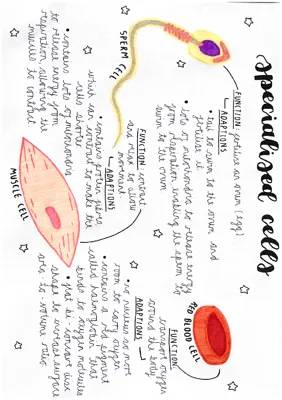 specialised cells
SPERM CELL
FUNCTION: fertilise an ovum (egg)
ADAPTIONS
• tail to swim to the ovum and
fertilise it
• lots of mitochondria to release energy
from respiration enabling the sperm to
swim to the ovum
MUSCLE CELL
FUNCTION: contract
and relax to allow
movement
ADAPTIONS
• contains protein fibres
which can contract to make the
cells shorter
• contains lots of mitochondria
to release energy from
respiration allowing the
muscles to contract
RED BLOOD CELL
FUNCTION:
transport oxygen
around the body
ADAPTIONS
• no nucleus so more
room to carry oxygen
• contains a red pigment
called haemoglobin that
binds to oxygen molecules
• flat bi-concave disc
shape to increase surface
area-to-volume ratio